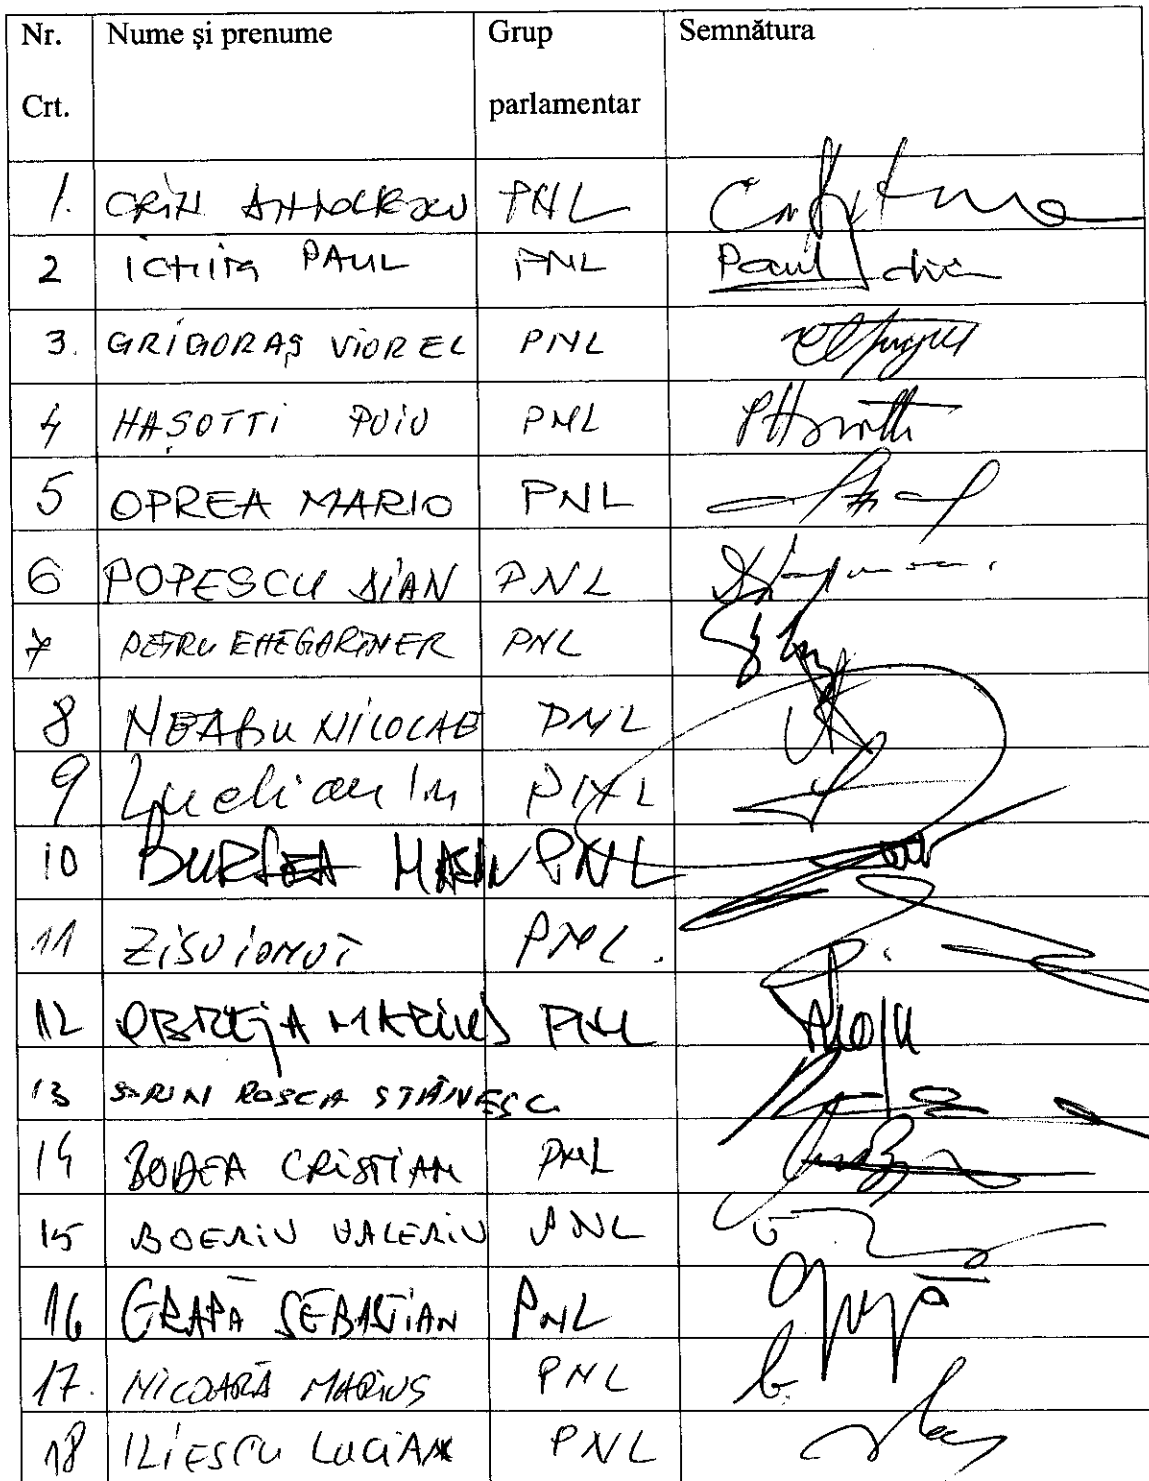 Nr. Crt. Nume și prenume Grup parlamentar Semnătura
1. CRIN ANTONESCU PNL
2 ICHIM PAUL PNL Paul
3. GRIGORAȘ VIOREL PNL
4 HAȘOTTI PUIU PNL PHașotti
5 OPREA MARIO PNL
6 POPESCU DIAN PNL
7 PETRU EHEGARTNER PNL
8 NEAGU NICOLAE PNL
9 PNL
10 BURLEA MARIN PNL
11 ZISU IONUȚ PNL.
12 OBREJA MARIUS PNL
13 SORIN ROSCA STĂNESC
14 BODEA CRISTIAN PNL
15 BOERIU VALERIU PNL
16 GRAPĂ SEBASTIAN PNL
17. NICOARĂ MARIUS PNL
18 ILIESCU LUCIAN PNL